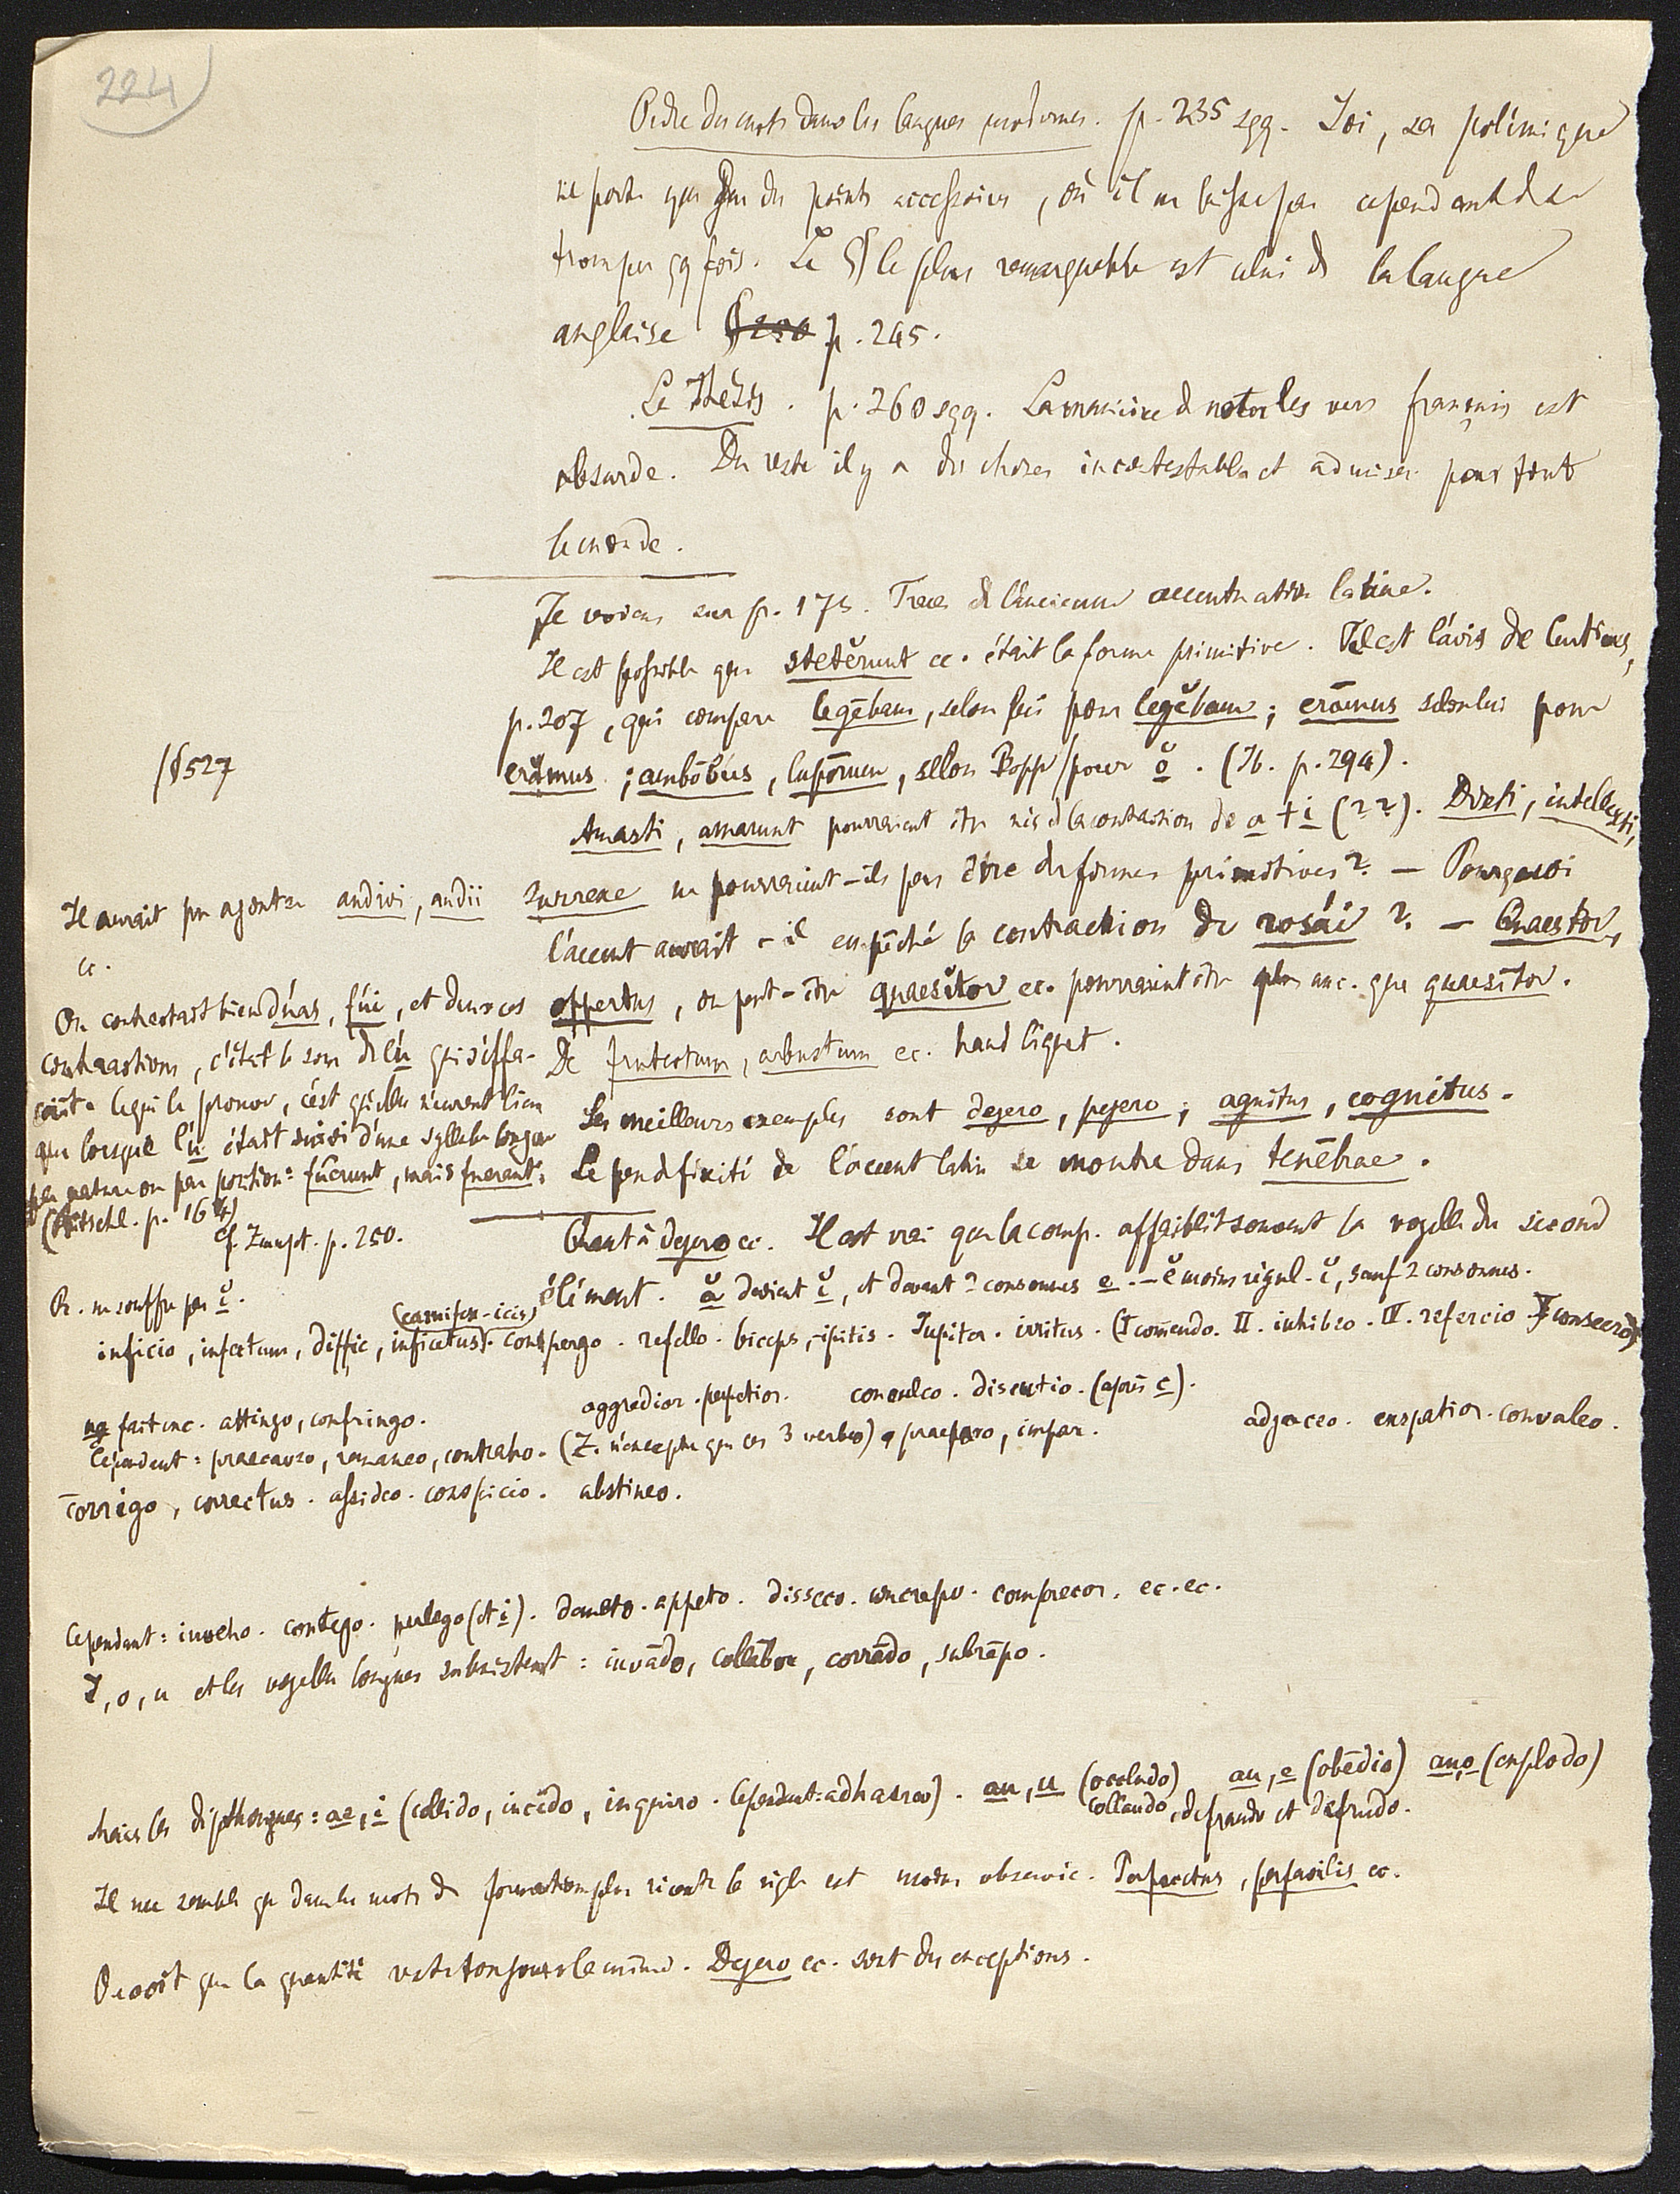 224)
Ordre des mots dans les langues modernes. p. 235 sqq. Ici, sa polémique
ne porte que sur des points accessoires, où il ne laisse pas cependant de se
tromper qq fois. Le § le plus remarquable est celui de la langue
anglaise p. 245.
Le Thésis. p. 260 sqq. La manière de noter les vers français est
absurde. Du reste il y a des choses incontestables et admises par tout
le monde.
Je reviens sur p. 175. Traces de l'ancienne accentuation latine.
Il est possible que stetĕrunt ec. était la forme primitive. Tel est l'avis de Curtius,
p. 207, qui compare legēbam, selon lui pour legĕbam; erāmus selon lui pour
erămus; ambōbus, lupōrum, selon Bopp pour ŏ. (Ib. p. 294).
/§527
Amasti, amarunt pourraient être nés de la contraction de a + i (??). Dixti, intellexti,
surrexe ne pourraient-ils pas être des formes primitives? — Pourquoi
l'accent aurait-il empêché la contraction de rosāi? — Quaestor,
oppertus, ou peut-être quaesĭtor ec. pourraient être plus anc. que quaesītor.
De frutectum, arbustum ec. haud liquet.
Les meilleurs exemples sont dejero, pejero; agnitus, cognitus.
Le peu de fixité de l'accent latin se montre dans tenēbrae.
Il aurait pu ajouter audivi, audii
ec.
On contractait bien dúas, fúi, et dans ces
contractions, c'était le son de l'u qui s'effa-
çait. Ce qui le prouve, c'est qu'elles n'eurent lieu
que lorsque l'u était suivi d'une syllabe longue
par nature ou par position: fúerunt, mais fuerant.
(Ritschl. p. 164)
cf. Zumpt. p. 250.
Quant à dejero ec. Il est vrai que la comp. affaiblit souvent la voyelle du second
élément. ă devient ĭ, et devant 2 consonnes e. — ĕ moins régul. ĭ, sauf 2 consonnes.
R. ne souffre pas ĭ.
(carnifex-icis)
inficio, infectum, diffic, inficetus. conspergo. refello. biceps, -ipitis. Jupiter. irritus. (I comendo. II. inhibeo. IV. refercio consecro)
ng fait inc. attingo, confringo. aggredior. perpetior. conculco. discutio. (après c).
Cependant: praecaveo, remaneo, contraho. (Z. n'excepte que ces 3 verbes) praeparo, impar. adjaceo. exspatior. convaleo.
corrigo, correctus. assideo. conspicio. abstineo.
Cependant: inveho. contego. perlego (et i). appeto. disseco. increpo. comprecor. ec. ec.
I, o, u et les voyelles longues subsistent: invādo, collābor, corrādo, subrēpo.
Mais les diphthongues: ae, i (collido, incīdo, inquiro. Cependant: adhaereo). au, u (occludo) au, e (obēdio) au, o (explodo)
collaudo, defraudo et defrudo.
Il me semble que dans les mots de formation plus récente la règle est moins observée. Perfectus, perfacilis ec.
On voit que la quantité reste toujours la même. Dejero ec. sont des exceptions.